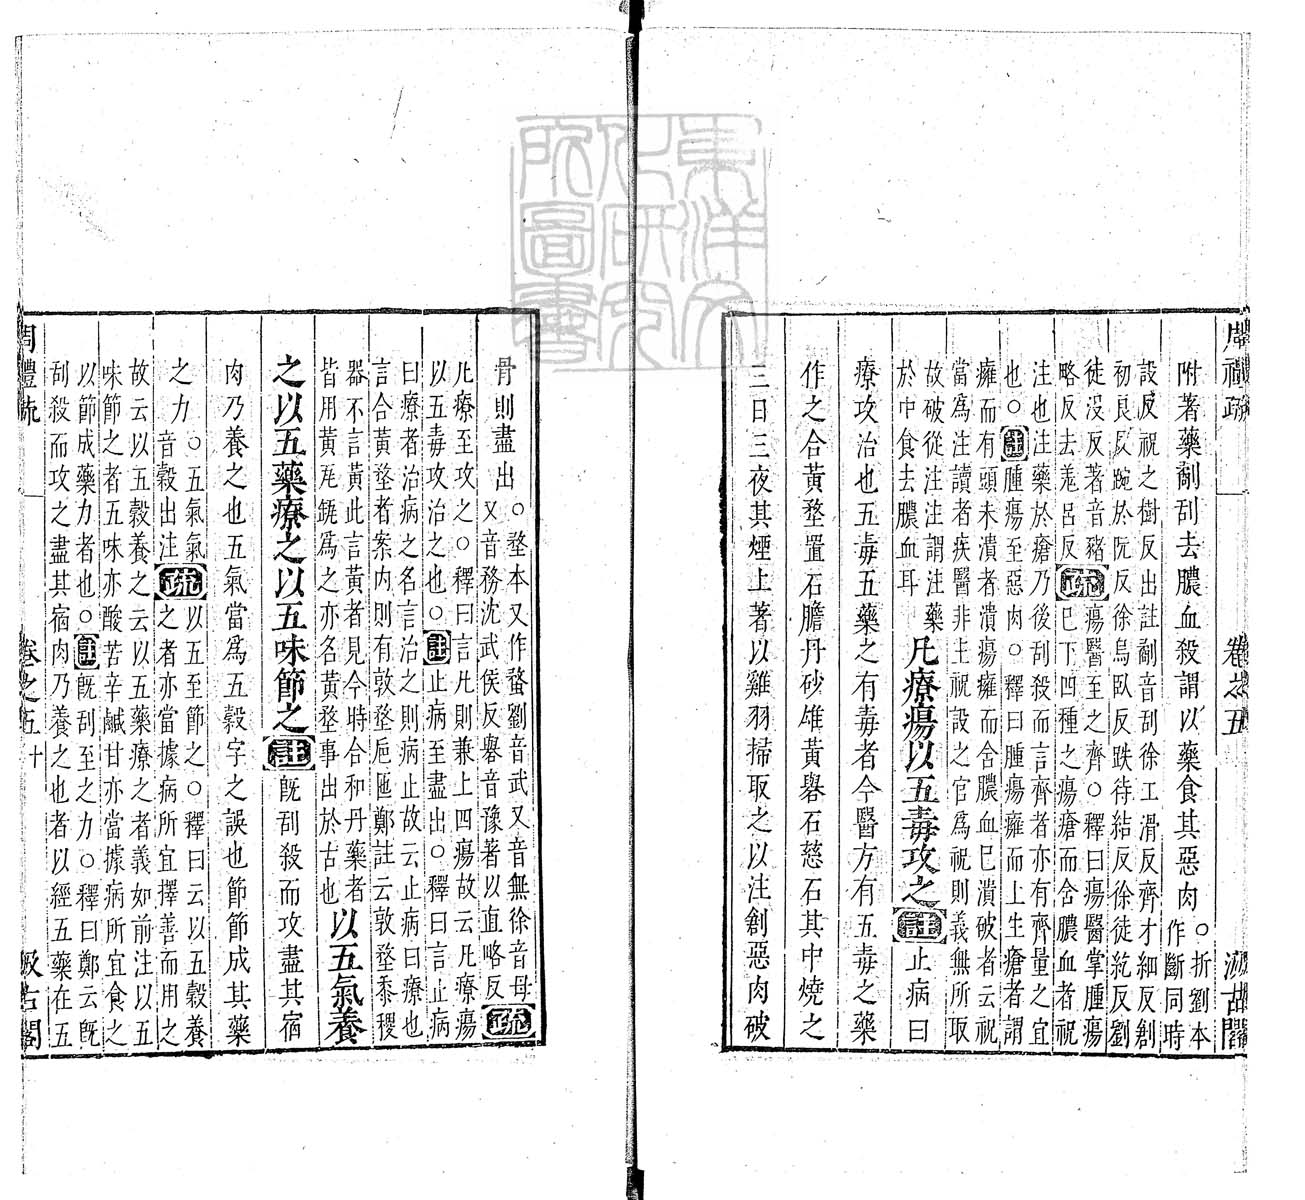 周禮疏 卷之五 汲古閣
附著藥劀刮去膿血殺謂以藥食其惡肉○折劉本
作斷同時
設反祝之樹反出註劀音刮徐工滑反齊才細反創
初良反踠於阮反徐烏臥反跌待結反徐徒紇反劉
徒沒反著音豬
略反去羌呂反疏瘍醫至之齊○釋曰瘍醫掌腫瘍
巳下四種之瘍瘡而含膿血者祝
注也注藥於瘡乃後刮殺而言齊者亦有齊量之宜
也○註腫瘍至惡肉○釋曰腫瘍癰而上生瘡者謂
癰而有頭未潰者潰瘍癰而含膿血巳潰破者云祝
當爲注讀者疾醫非主祝設之官爲祝則義無所取
故破從注注謂注藥
於中食去膿血耳 凡療瘍以五毒攻之註止病曰
療攻治也五毒五藥之有毒者今醫方有五毒之藥
作之合黃堥置石膽丹砂雄黃礜石慈石其中燒之
三日三夜其煙上著以雞羽掃取之以注創惡肉破
骨則盡出○堥本又作蝥劉音武又音無徐音母
又音務沈武侯反礜音豫著以直略反疏
凡療至攻之○釋曰言凡則兼上四瘍故云凡療瘍
以五毒攻治之也○註止病至盡出○釋曰言止病
曰療者治病之名言治之則病止故云止病曰療也
言合黃堥者案內則有敦堥卮匜鄭註云敦堥黍稷
器不言黃此言黃者見今時合和丹藥者
皆用黃瓦鍑爲之亦名黃堥事出於古也 以五氣養
之以五藥療之以五味節之註旣刮殺而攻盡其宿
肉乃養之也五氣當爲五穀字之誤也節節成其藥
之力○五氣氣
音穀出注疏以五至節之○釋曰云以五穀養
之者亦當據病所宜擇善而用之
故云以五穀養之云以五藥療之者義如前注以五
味節之者五味亦酸苦辛鹹甘亦當據病所宜食之
以節成藥力者也○註旣刮至之力○釋曰鄭云旣
刮殺而攻之盡其宿肉乃養之也者以經五藥在五
周禮疏 卷之五 十 汲古閣
東洋文化研究所圖書